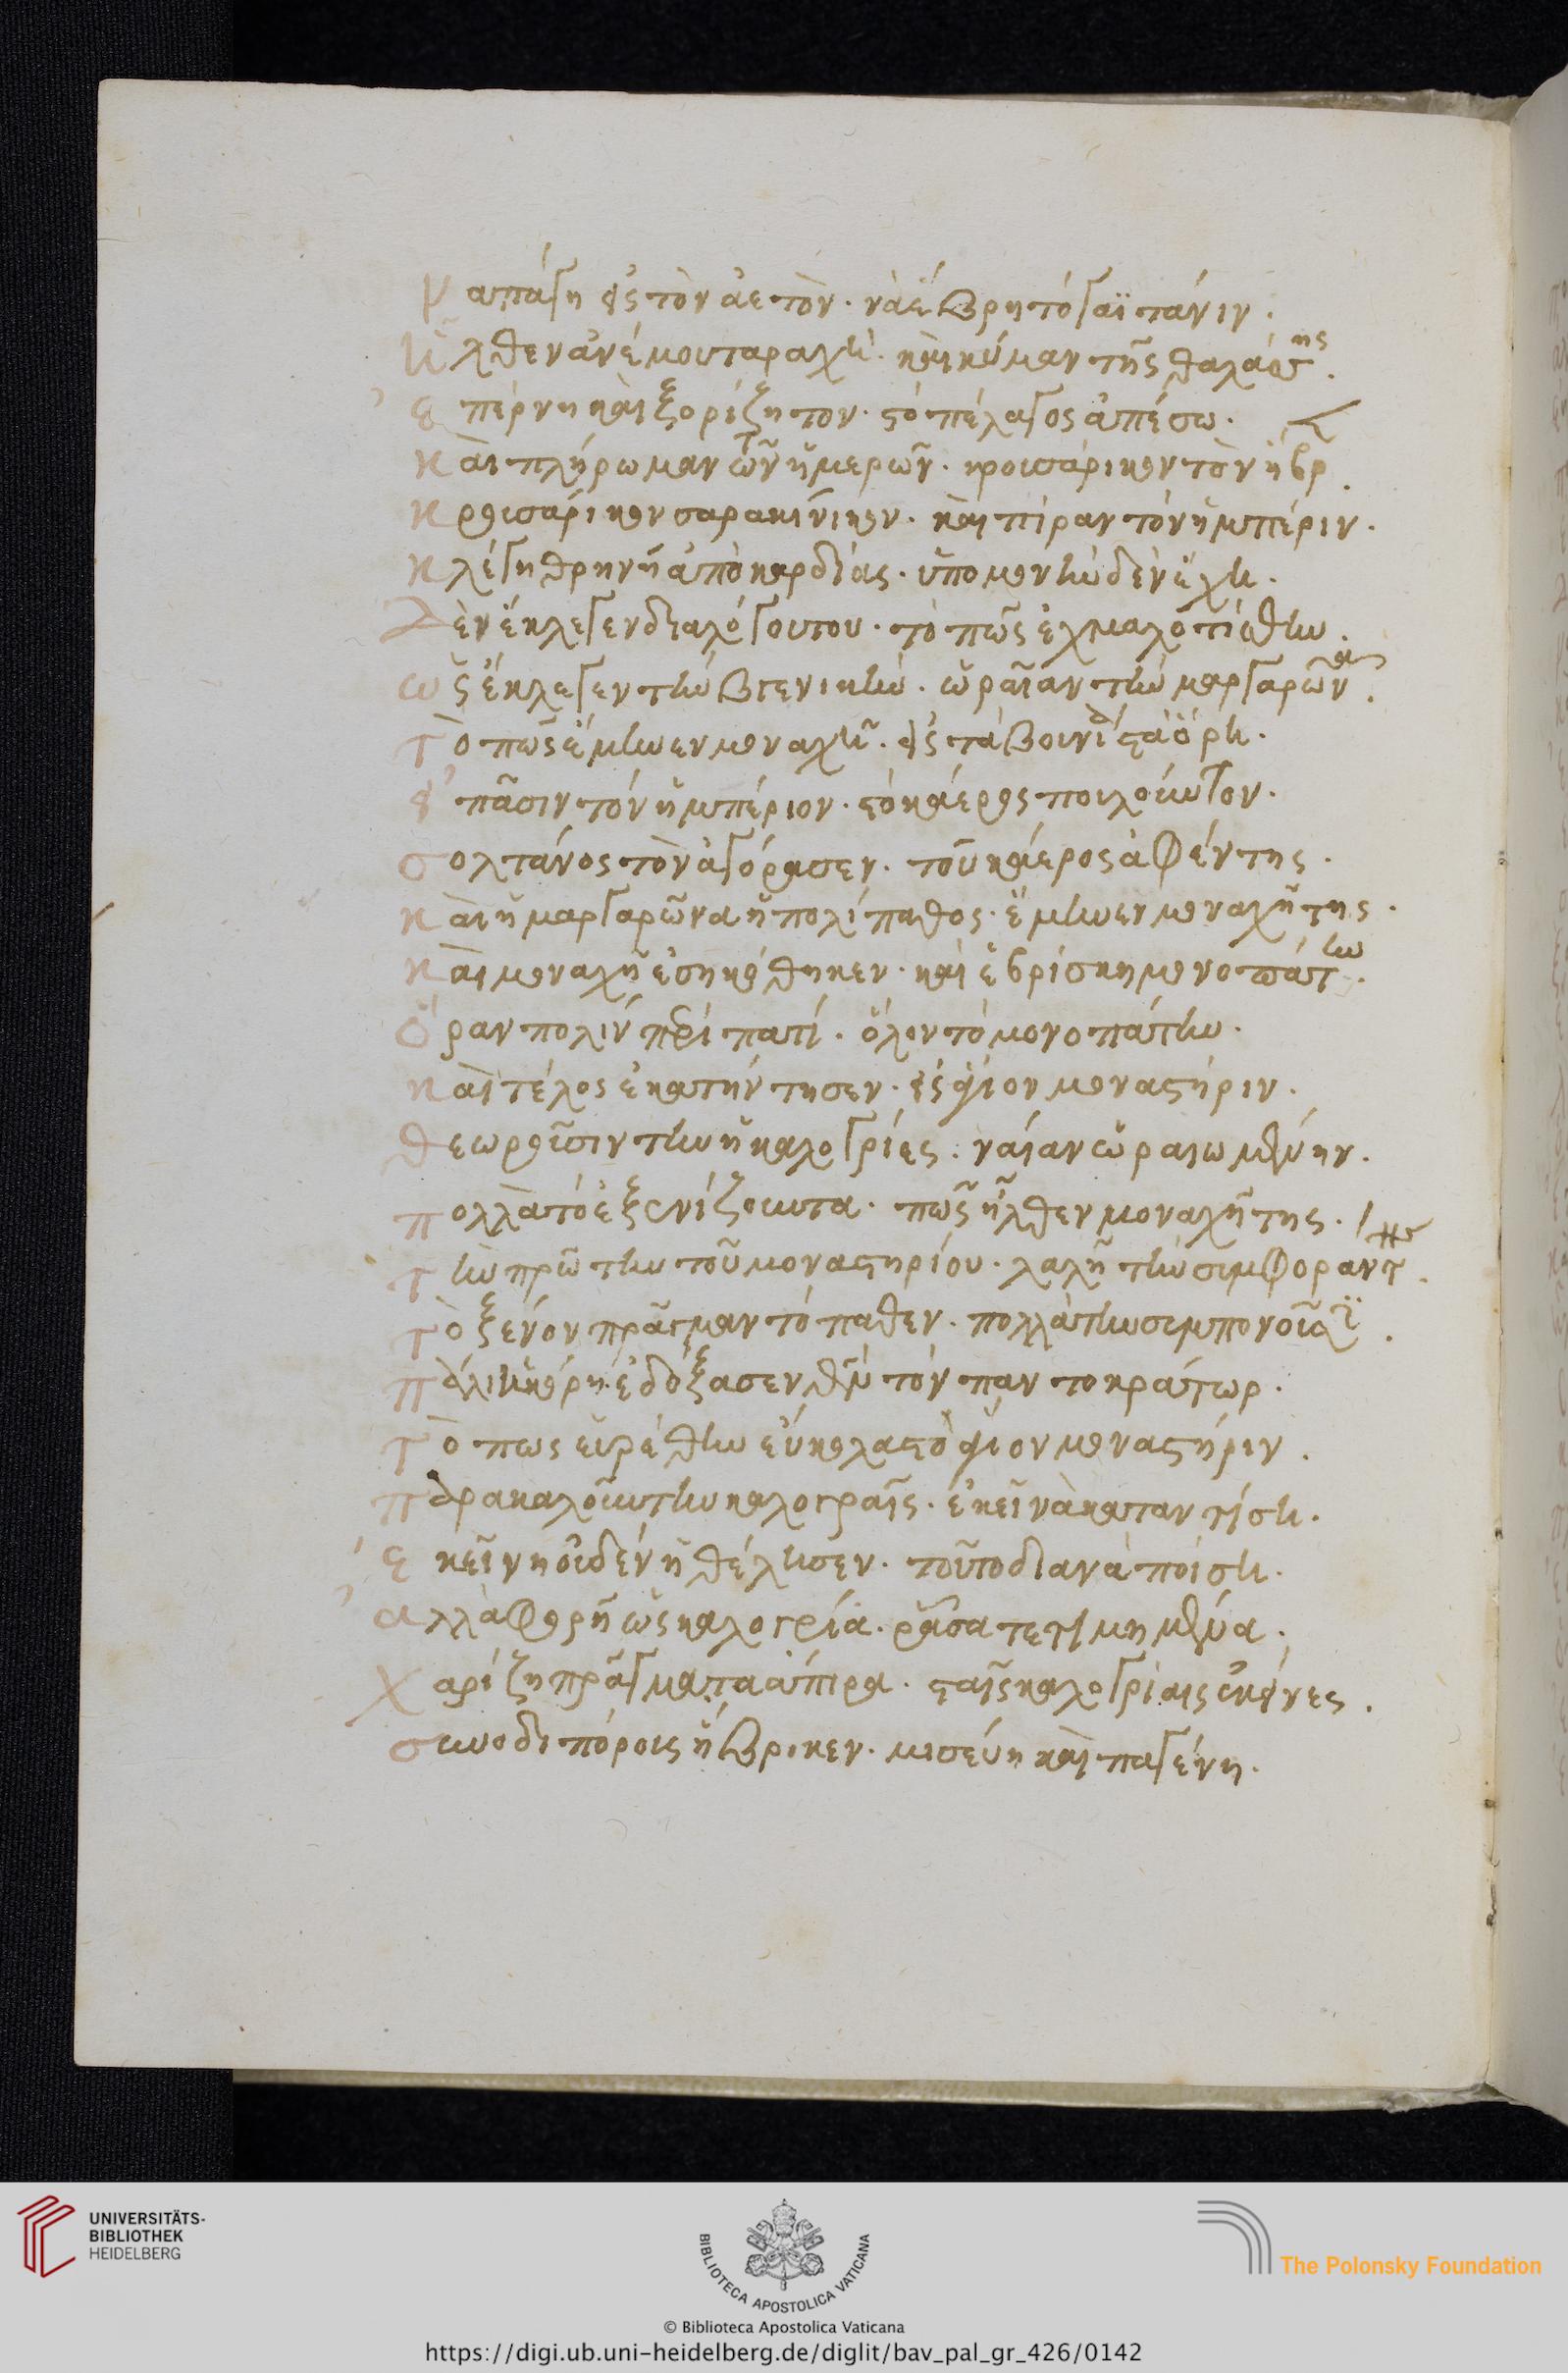 Ν απάγη εἰς τὸν ἀετὸν · νὰ εὕβρη τὸ γαϊτάνιν ·
Ἦλθεν ἀνέμου ταραχὴ · καὶ κύμαν τῆς θαλάσσης ·
ἐπέρνη καὶ ξορίζη τον · στὸ πέλαγος ἀπέσω ·
Καὶ πλήρωμαν τῶν ἡμερῶν · κρουσάρικον τὸν ηὗβρ
Κρουσάρικον σαρακίνικον · καὶ πῖραν τὸν ἡμπέριν ·
Κλέγη θρηνῆ ἀπὸ καρδίας · ὑπομονὴν δὲν ἔχη ·
Δὲν ἔκλεγεν διαλόγου του · τὸ πῶς ἐχμαλοτίσθην ·
ὡς ἔκλεγεν τὴν βγενικὴν · ὡραῖαν τὴν μαργαρῶνα ·
Τὸ πῶς ἔμηνεν μοναχὴ · εἰς τὰ βουνὶά στὰ ὄρη ·
ἐπᾶσιν τὸν ἡμπέριον · στὸ κάερος πουλοῦν τον ·
σολτάνος τὸν ἀγόρασεν · τοῦ κάερος ἀφέντης ·
Καὶ ἡ μαργαρῶνα ἡ πολίπαθος · ἔμηνεν μοναχῆ της ·
Καὶ μοναχῆ ἐσηκόθηκεν · καὶ εὑρίσκη μονοπάτην ·
Ὅραν πολὶν πρὶ πατὶ · ὅλον τὸ μονοπάτην ·
Καὶ τέλος ἐκατήντησεν · εἰς ἅγιον μοναστήριν ·
Θεωροῦσιν την ἡ καλογρίες · νὰ ἦαν ὡραιωμένην ·
πολλὰ τὸ ἐξενίζουντα · πῶς ἦλθεν μοναχῆ της ·
τὴν πρώτην τοῦ μοναστηρίου · λαλῆ τὴν σιμφοραντ ·
Τὸ ξένον πρᾶγμαν τὸ παθεν · πολλὰ την σιμπονοῖσϊ ·
Πάλιν ἡ κόρη ἐδόξασεν θν τὸν παντοκράτωρ ·
Τὸ πως εὑρέθην εὔκολα στὸ ἅγιον μοναστήριν ·
Παρακαλοῦν την καλογραῖς · ἐκεῖ νὰ καταντίση ·
Ἐκεῖνη οὐδὲν ἠθέλησεν · τοῦτο διὰ νὰ ποίση ·
ἀλλὰ φορῆ ὡς καλογρία · ράσα τετιμημένα ·
Χαρίζη πράγματα ἄπιρα · σταῖς καλογρίαις ἐκείνες ·
συνοδιπόρους ἤβρικεν · μισεύη καὶ παγένη ·
UNIVERSITÄTS-
BIBLIOTHEK
HEIDELBERG
BIBLIOTECA APOSTOLICA VATICANA
The Polonsky Foundation
© Biblioteca Apostolica Vaticana
https://digi.ub.uni-heidelberg.de/diglit/bav_pal_gr_426/0142